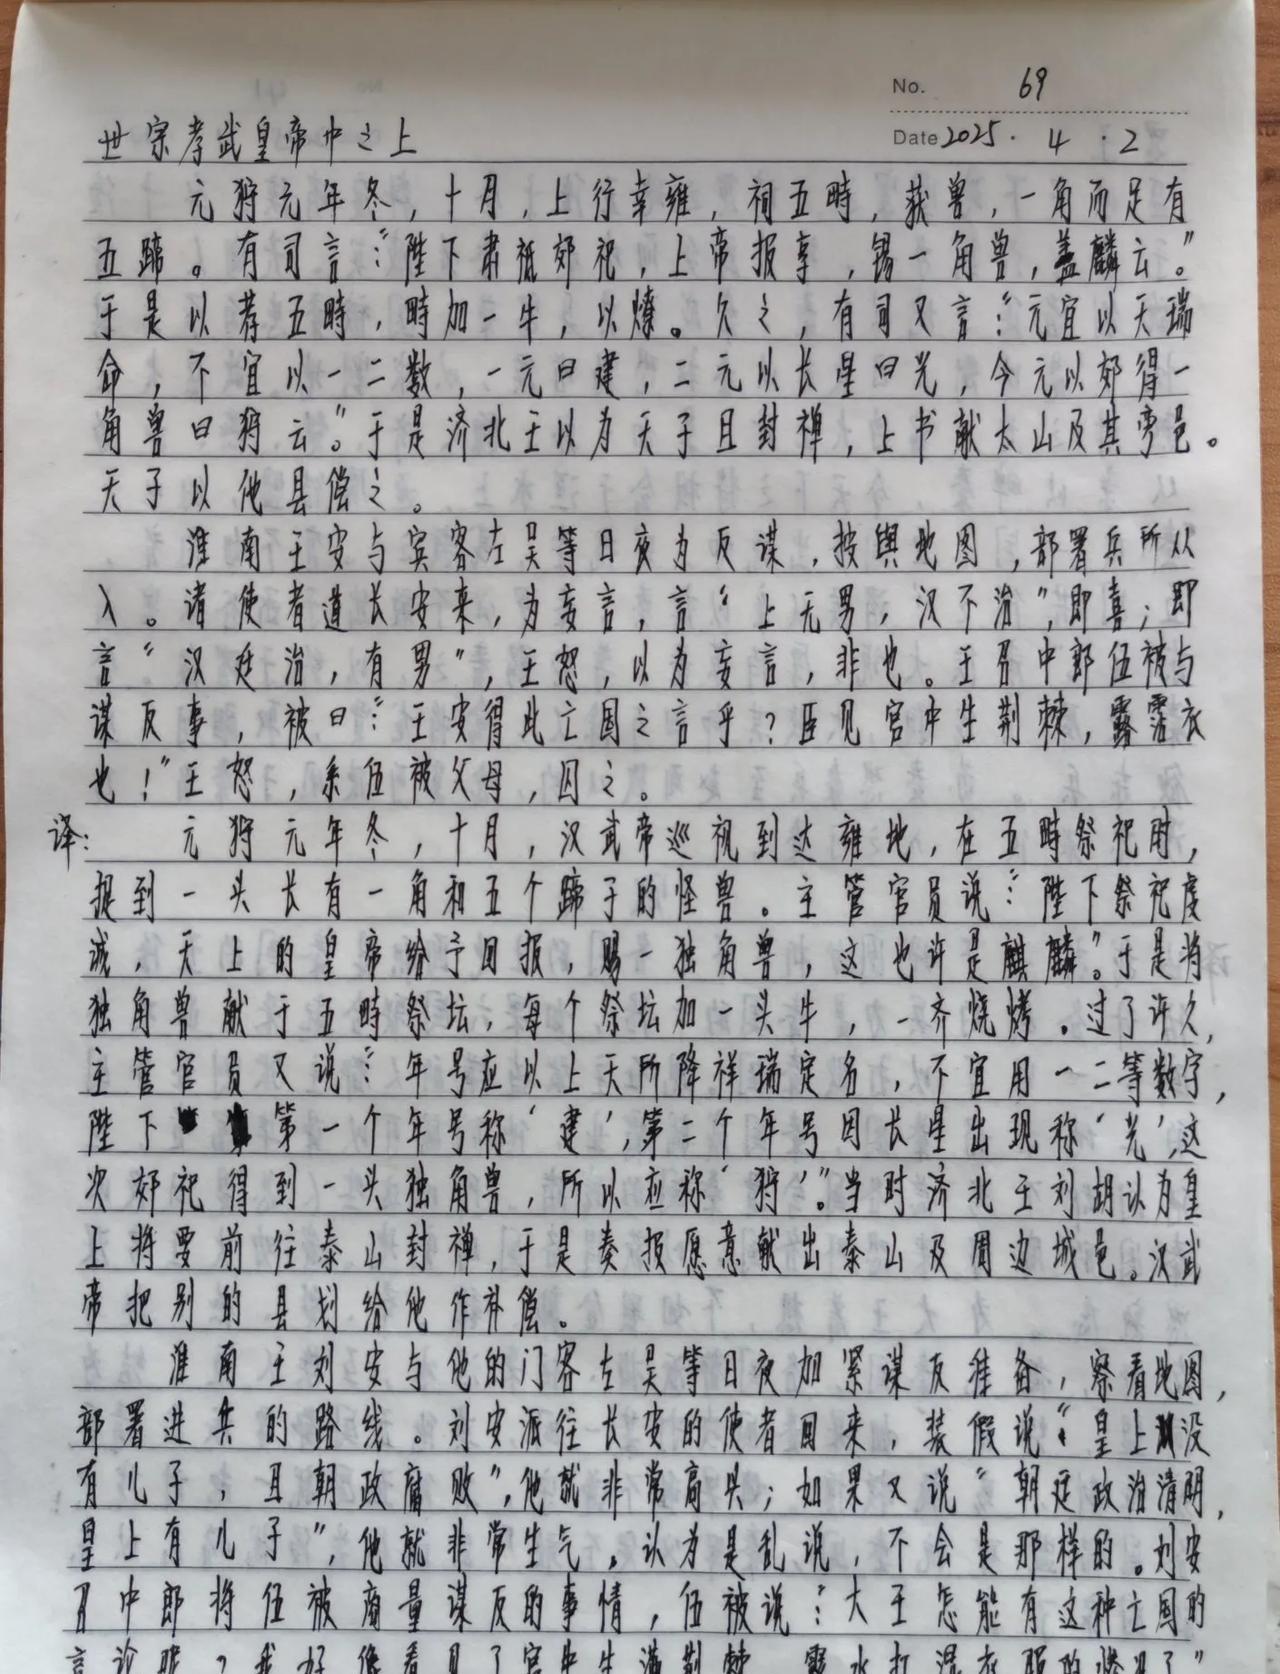 No. 69
世宗孝武皇帝中之上
Date 2025.4.2
元狩元年冬，十月，上行幸雍，祠五畤，获兽，一角而足有
五蹄。有司言：“陛下肃祗郊祀，上帝报享，锡一角兽，盖麟云。”
于是以荐五畤，畤加一牛，以燎。久之，有司又言：“元宜以天瑞
命，不宜以一二数，一元曰建，二元以长星曰光，今元以郊得一
角兽曰狩云。”于是济北王以为天子且封禅，上书献太山及其旁邑。
天子以他县偿之。
淮南王安与宾客左吴等日夜为反谋，按舆地图，部署兵所从
入。诸使者道长安来，为妄言，言“上无男，汉不治”，即喜；即
言“汉廷治，有男”，王怒，以为妄言，非也。王召中郎伍被与
谋反事，被曰：“王安得此亡国之言乎？臣见宫中生荆棘，露霑衣
也！”王怒，系伍被父母，囚之。
译：元狩元年冬，十月，汉武帝巡视到达雍地，在五畤祭祀时，
捉到一头长有一角和五个蹄子的怪兽。主管官员说：“陛下祭祀虔
诚，天上的皇帝给予回报，赐一独角兽，这也许是麒麟。”于是将
独角兽献于五畤祭坛，每个祭坛加一头牛，一齐烧烤。过了许久，
主管官员又说：“年号应以上天所降祥瑞定名，不宜用一二等数字，
陛下第一个年号称‘建’，第二个年号因长星出现称‘光’，这
次郊祀得到一头独角兽，所以应称‘狩’。”当时济北王刘胡认为皇
上将要前往泰山封禅，于是奏报愿意献出泰山及周边城邑。汉武
帝把别的县划给他作补偿。
淮南王刘安与他的门客左吴等日夜加紧谋反准备，察看地图，
部署进兵的路线。刘安派往长安的使者回来，装假说“皇上没
有儿子，且朝政腐败”，他就非常高兴；如果又说“朝廷政治清明，
皇上有儿子”，他就非常生气，认为是乱说，不会是那样的。刘安
召中郎将伍被商量谋反的事情，伍被说：“大王怎能有这种亡国的
言论呢？我好像看见了宫中生满荆棘，露水打湿衣服的惨况了”